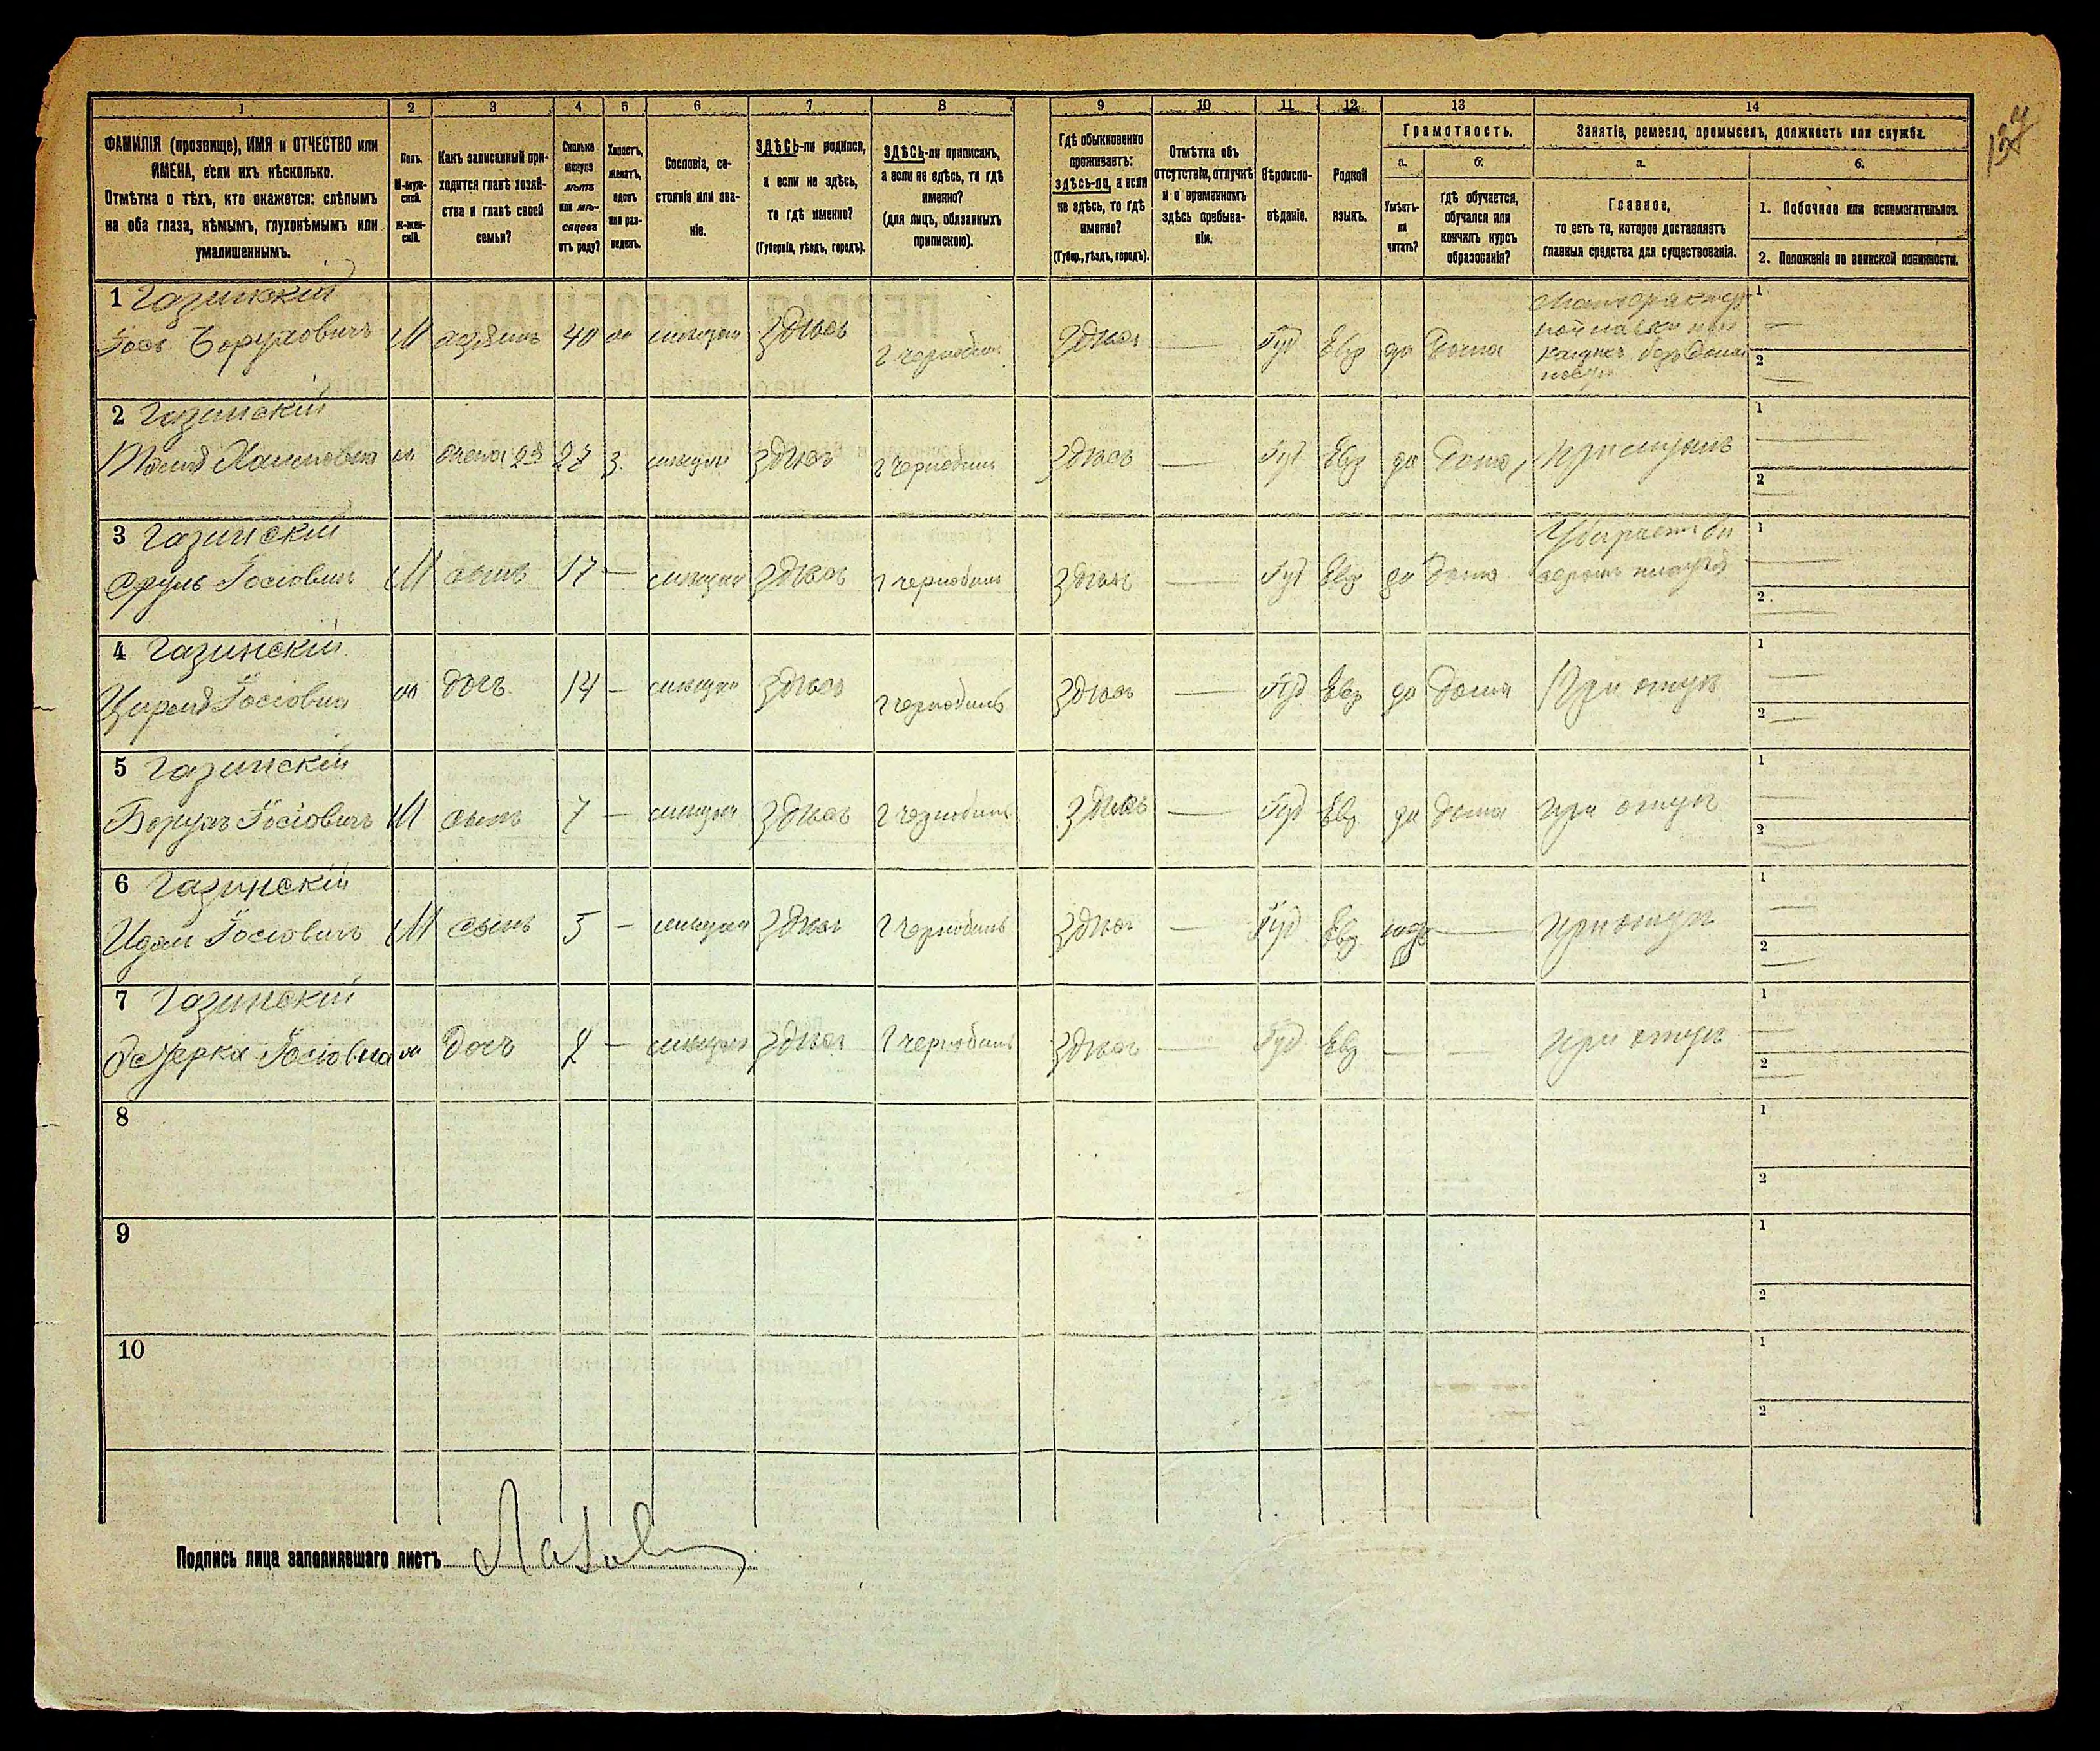 137
1 2 3 4 5 6 7 8 9 10 11 12 13 14
ФАМИЛІЯ (прозвище), ИМЯ и ОТЧЕСТВО или
ИМЕНА, если ихъ нѣсколько.
Отмѣтка о тѣхъ, кто окажется: слѣпымъ
на оба глаза, нѣмымъ, глухонѣмымъ или
умалишеннымъ.
Полъ.
М-муж-
ской.
Ж-жен-
скій.
Какъ записанный при-
ходится главѣ хозяй-
ства и главѣ своей
семьи?
Сколько
минуло
лѣтъ
или мѣ-
сяцевъ
отъ роду?
Холостъ,
женатъ,
вдовъ
или раз-
веденъ.
Сословіе, со-
стояніе или зва-
ніе.
ЗДѢСЬ-ли родился,
а если не здѣсь,
то гдѣ именно?
(Губернія, уѣздъ, городъ).
ЗДѢСЬ-ли приписанъ,
а если не здѣсь, то гдѣ
именно?
(для лицъ, обязанныхъ
припискою).
Гдѣ обыкновенно
проживаетъ:
здѣсь-ли, а если
не здѣсь, то гдѣ
именно?
(Губер., уѣздъ, городъ).
Отмѣтка объ
отсутствіи, отлучкѣ
и о временномъ
здѣсь пребыва-
ніи.
Вѣроиспо-
вѣданіе.
Родной
языкъ.
Грамотность.
а.
Умѣетъ-
ли
читать?
б.
гдѣ обучается,
обучался или
кончилъ курсъ
образованія?
Занятіе, ремесло, промыселъ, должность или служба.
а.
Главное,
то есть то, которое доставляетъ
главныя средства для существованія.
б.
1. Побочное или вспомогательное.
2. Положеніе по воинской повинности.
1 Газинскій
Іось Боруховичъ М хозяинъ 40 здѣсь г Чернобыль здѣсь — Іуд Евр да дома
1 —
2 —
2 Газинскій
жена 2я 27 з. здѣсь г Чернобыль здѣсь — Іуд Евр да дома
1 —
2 —
3 Газинскій
Сруль Іосіовичъ М сынъ 17 — здѣсь г Чернобыль здѣсь — Іуд Евр да дома
1 —
2 —
4 Газинскій
Іосіовна дочъ 14 — здѣсь г Чернобыль здѣсь — Іуд Евр да дома При отцѣ
1 —
2 —
5 Газинскій
Борухъ Іосіовичъ М сынъ 7 — здѣсь г Чернобыль здѣсь — Іуд Евр да дома при отцѣ
1 —
2 —
6 Газинскій
Іосіовичъ М сынъ 5 — здѣсь г Чернобыль здѣсь — Іуд Евр — при отцѣ
1 —
2 —
7 Газинскій
Эстерка Іосіовна дочъ 2 — здѣсь г Чернобыль здѣсь — Іуд Евр — — при отцѣ
1 —
2 —
8
1
2
9
1
2
10
1
2
Подпись лица заполнявшаго листъ